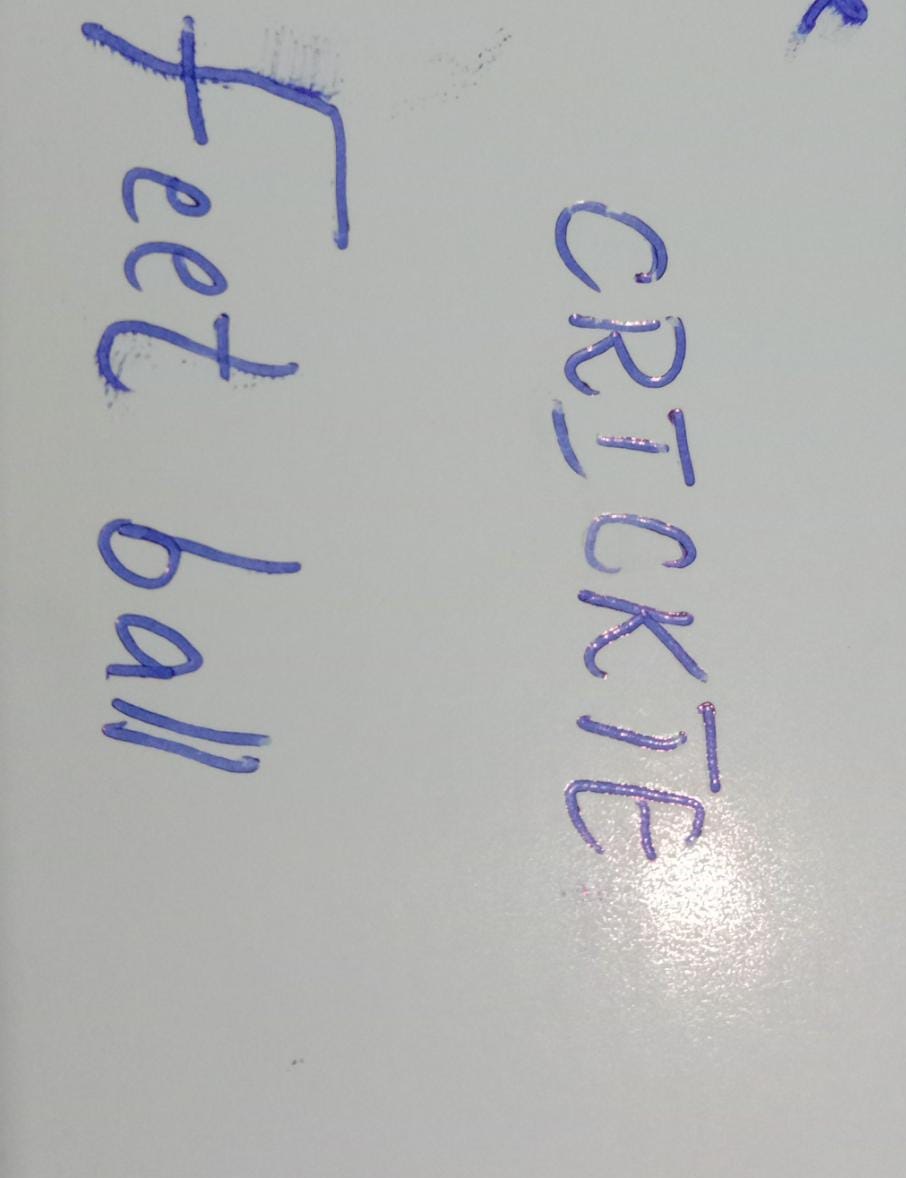 CRICKTE
Feet ball